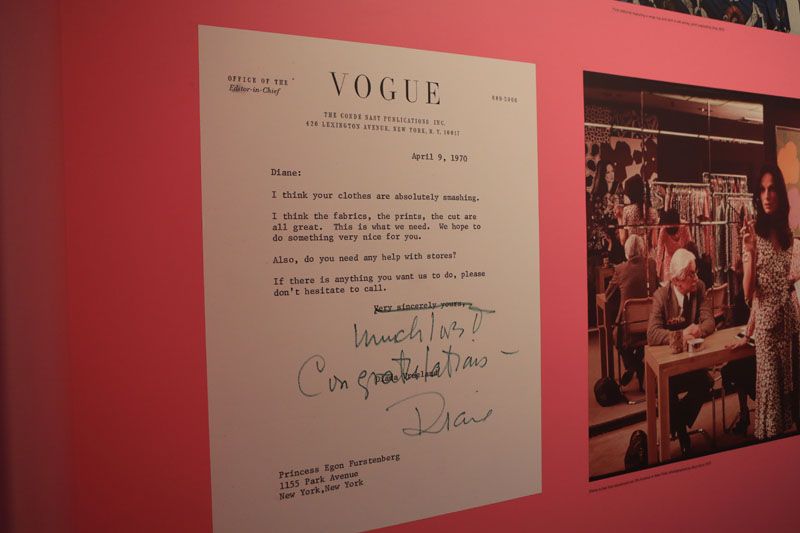 OFFICE OF THE
Editor-in-Chief
VOGUE
THE CONDE NAST PUBLICATIONS INC.
420 LEXINGTON AVENUE, NEW YORK, N. Y. 10017
689-5900
April 9, 1970
Diane:
I think your clothes are absolutely smashing.
I think the fabrics, the prints, the cut are
all great. This is what we need. We hope to
do something very nice for you.
Also, do you need any help with stores?
If there is anything you want us to do, please
don't hesitate to call.
Very sincerely yours,
Much love!
Congratulations –
Diana Vreeland
Diane
Princess Egon Furstenberg
1155 Park Avenue
New York, New York